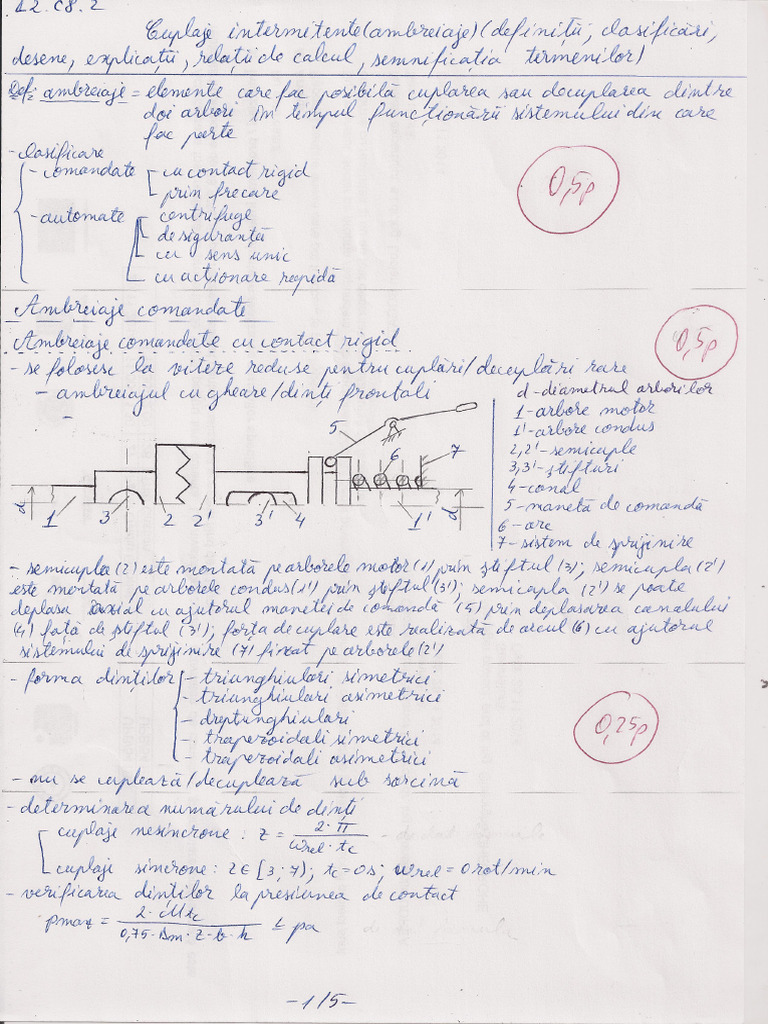 12.C8.2
Cuplaje intermitente (ambreiaje) (definiții, clasificări,
desene, explicații, relații de calcul, semnificația termenilor)
Def: ambreiaje = elemente care fac posibilă cuplarea sau decuplarea dintre
doi arbori în timpul funcționării sistemului din care
fac parte
- clasificare
- comandate - cu contact rigid
prin frecare
0,5p
- automate - centrifuge
- de siguranță
- cu sens unic
cu acționare rapidă
Ambreiaje comandate
Ambreiaje comandate cu contact rigid
0,5p
- se folosesc la viteze reduse pentru cuplări/decuplări rare
- ambreiajul cu gheare/dinți frontali
d - diametrul arborilor
1 - arbore motor
1' - arbore condus
2,2' - semicuple
3,3' - știfturi
4 - canal
5 - maneta de comandă
6 - arc
7 - sistem de sprijinire
5 6 7
d 1 3 2 2' 3' 4 1' d
- semicupla (2) este montată pe arborele motor (1) prin știftul (3); semicupla (2')
este montată pe arborele condus (1') prin știftul (3'); semicupla (2') se poate
deplasa axial cu ajutorul manetei de comandă (5) prin deplasarea canalului
(4) față de știftul (3'); forța de cuplare este realizată de arcul (6) cu ajutorul
sistemului de sprijinire (7) fixat pe arborele (2')
- forma dinților - triunghiulari simetrici
- triunghiulari asimetrici
- dreptunghiulari
- trapezoidali simetrici
- trapezoidali asimetrici
0,25p
- nu se cuplează/decuplează sub sarcină
- determinarea numărului de dinți
cuplaje nesincrone : z = 2·π / ωrel · tc
cuplaje sincrone : z ∈ [3; 7); tc = 0s; ωrel = 0 rot/min
- verificarea dinților la presiunea de contact
pmax = 2·Mtc / 0,75·Dm·z·b·h ≤ pa
- 1/5 -